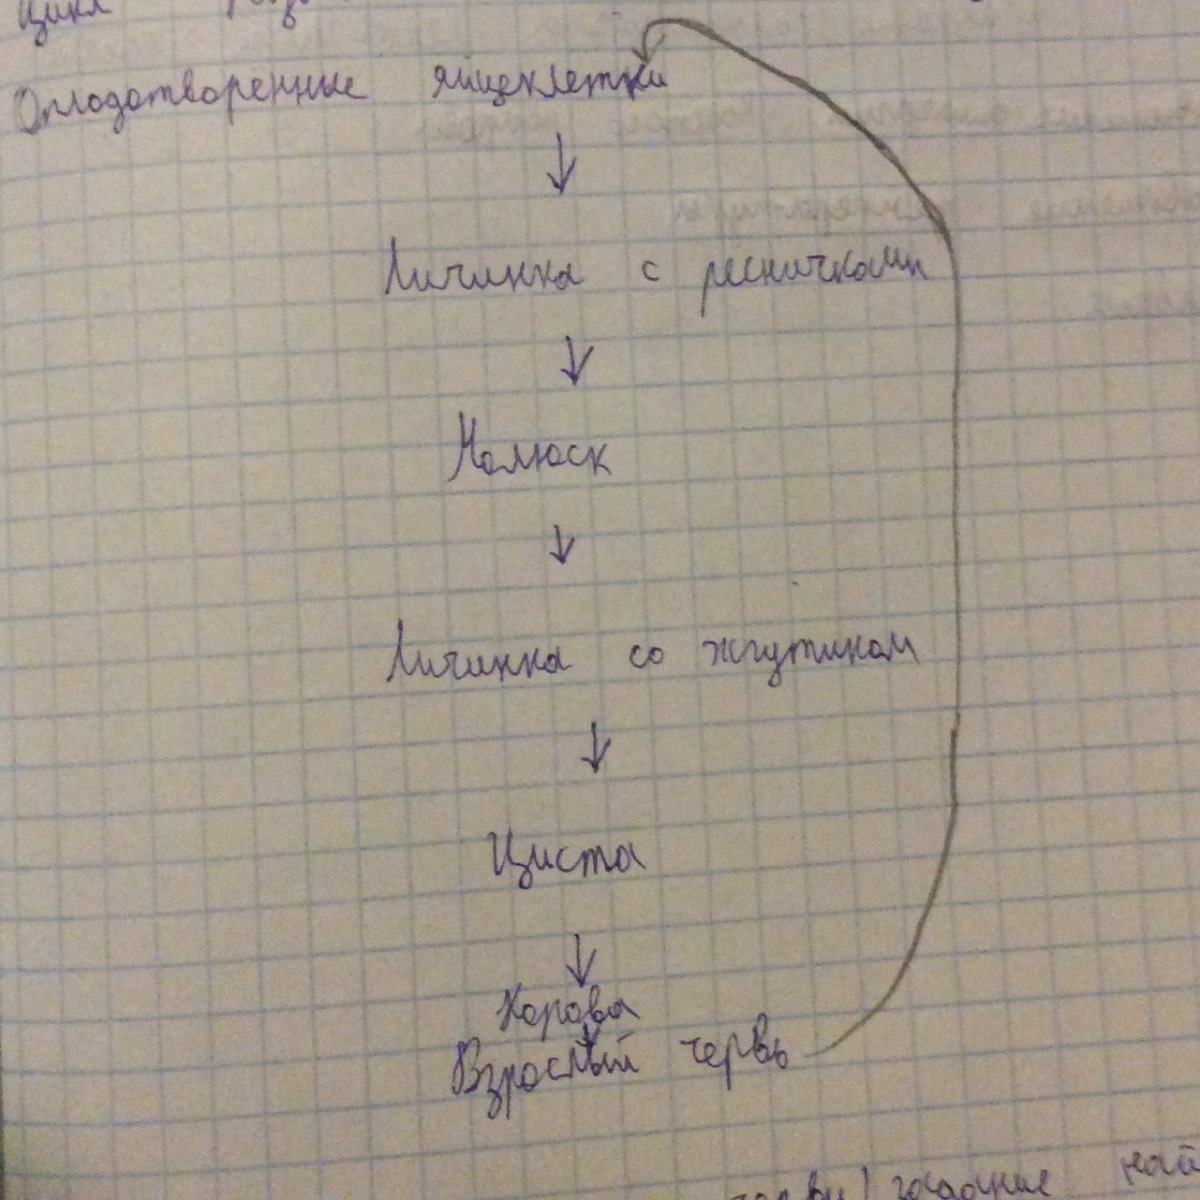 Цикл
Оплодотворенные яйцеклетки
Личинка с ресничками
Молюск
Личинка со жгутиком
Циста
Корова
Взрослый червь